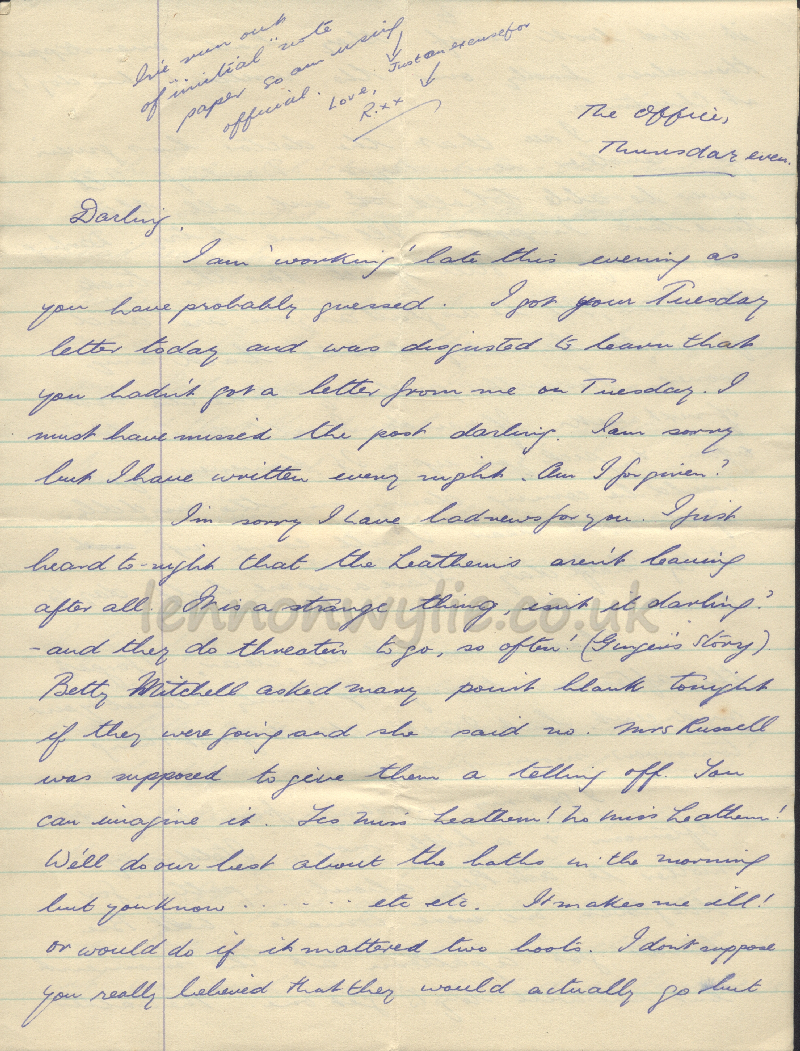 I've run out
of "initial" note
paper so am using
official.
Just an excuse for
Love,
R.xx
The Office,
Thursday even.
Darling,
I am 'working' late this evening as
you have probably guessed. I got your Tuesday
letter today and was disgusted to learn that
you hadn't got a letter from me on Tuesday. I
must have missed the post darling. I am sorry
but I have written every night. Am I forgiven?
I'm sorry I have bad news for you. I just
heard to-night that the Leathems aren't leaving
after all. It is a strange thing, isn't it darling?
- and they do threaten to go, so often! (Ginger's Story)
Betty Mitchell asked Mary point blank tonight
if they were going and she said no. Mrs Russell
was supposed to give them a telling off. You
can imagine it. Yes Miss Leathem! No Miss Leathem!
We'll do our best about the baths in the morning
but you know . . . . . . . etc etc. It makes me ill!
or would do if it mattered two hoots. I don't suppose
you really believed that they would actually go but
lennonwylie.co.uk